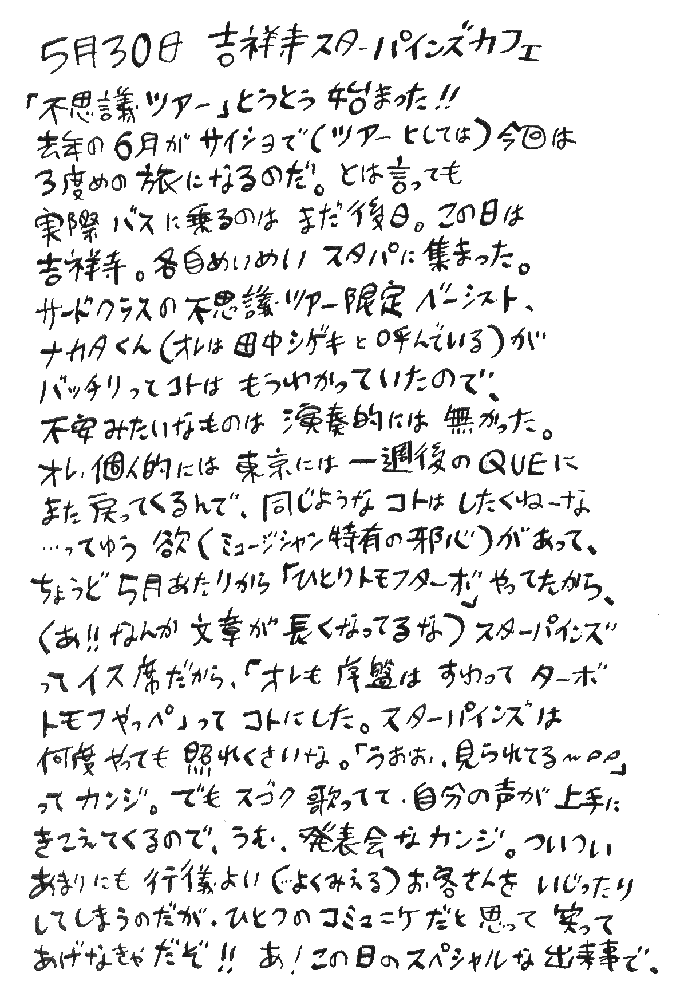 5月30日 吉祥寺スターパインズカフェ
「不思議ツアー」とうとう始まった!!
去年の6月がサイショで(ツアーとしては)今回は
3度めの旅になるのだ。とは言っても
実際バスに乗るのはまだ後日。この日は
吉祥寺。各自めいめいスタパに集まった。
サードクラスの不思議ツアー限定ベーシスト、
ナカタくん(オレは田中シゲキと呼んでいる)が
バッチリってコトはもうわかっていたので、
不安みたいなものは演奏的には無かった。
オレ、個人的には東京には一週後のQUEに
また戻ってくるんで、同じようなコトはしたくねーな
…ってゆう欲(ミュージシャン特有の邪心)があって、
ちょうど5月あたりから「ひとりトモフターボ」やってたから、
(あ!!なんか文章が長くなってるな)スターパインズ
ってイス席だから、「オレも序盤はすわってターボ
トモフやっぺ」ってコトにした。スターパインズは
何度やっても照れくさいな。「うおお、見られてる〜。。」
ってカンジ。でもスゴク歌ってて、自分の声が上手に
きこえてくるので、うむ、発表会なカンジ。ついつい
あまりにも行儀よい(よくみえる)お客さんをいじったり
してしまうのだが、ひとつのコミュニケだと思って笑って
あげなきゃだぞ!!あ!この日のスペシャルな出来事で、